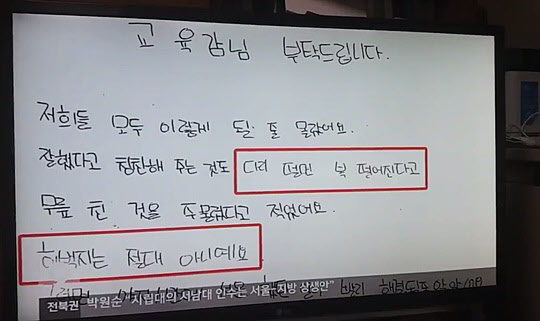 교육감님 부탁드립니다.
저희들 모두 이렇게 될 줄 몰랐어요.
잘했다고 칭찬해 주는 것도 다리 떨면 복 떨어진다고
무릎 친 것을 주물렀다고 적었어요.
허벅지는 절대 아니예요
전북권 박원순 "시립대의 서남대 인수는 서울-지방 상생안"